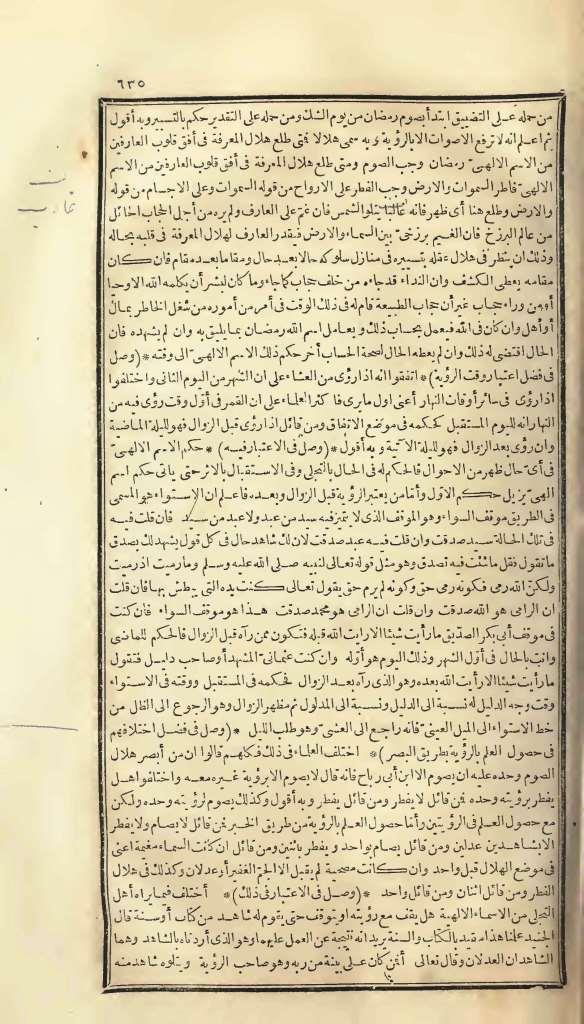 ٦٣٥
من حمله على التضييق ابتدأ بصوم رمضان من يوم الشك ومن حمله على التقدير حكم بالتسيير وبه أقول
ثم اعلم انه لا ترفع الاصوات الا بالرؤية وبه سمى هلالا فمتى طلع هلال المعرفة فى أفق قلوب العارفين
من الاسم الالهىّ رمضان وجب الصوم ومتى طلع هلال المعرفة فى أفق قلوب العارفين من الاسم
الالهىّ فاطر السموات والارض وجب الفطر على الارواح من قوله السموات وعلى الاجسام من قوله
والارض وطلع هنا أى ظهر فانه غالبا يتلو الشمس فان غم على العارف ولم يره من أجل الحجاب الحائل
من عالم البرزخ فان الغيم برزخىّ بين السماء والارض فيقدر العارف لهلال المعرفة فى قلبه بحاله
وذلك ان ينظر فى هلال عقله بتسييره فى منازل سلوكه حالا بعد حال ومقاما بعد مقام فان كان
مقامه يعطى الكشف وان النداء قد جاء من خلف حجاب كما جاء وما كان لبشر أن يكلمه الله الا وحيا
أو من وراء حجاب غير أن حجاب الطبيعة قام له فى ذلك الوقت فى أمر من أموره من شغل الخاطر بمال
أو أهل وان كان فى الله فيعمل بحساب ذلك ويعامل اسم الله رمضان بما يليق به وان لم يشهده فان
الحال اقتضى له ذلك وان لم يعطه الحال لصحة الحساب أخر حكم ذلك الاسم الالهىّ الى وقته *(وصل
فى فصل اعتبار وقت الرؤية)* اتفقوا انه اذا رؤى من العشاء على ان الشهر من اليوم الثانى واختلفوا
اذا رؤى فى سائر أوقات النهار أعنى اول ما يرى فاكثر العلماء على ان القمر فى أوّل وقت رؤى فيه من
النهار انه لليوم المستقبل كحكمه فى موضع الاتفاق ومن قائل اذا رؤى قبل الزوال فهو لليلة الماضية
وان رؤى بعد الزوال فهو لليلة الآتية وبه أقول *(وصل فى الاعتبار فيه)* حكم الاسم الالهىّ
فى أى حال ظهر من الاحوال فالحكم له فى الحال بالتجلى وفى الاستقبال بالاثر حتى يأتى حكم اسم
الهى يزيل حكم الاوّل وأما من يعتبر الرؤية قبل الزوال وبعده فاعلم ان الاستواء هو المسمى
فى الطريق موقف السواء وهو الموقف الذى لا يتميز فيه سيد من عبد ولا عبد من سيد فان قلت فيه
فى تلك الحالة سيد صدقت وان قلت فيه عبد صدقت لان لك شاهد حال فى كل قول يشهد لك بصدق
ما تقول فقل ما شئت فيه تصدق وهو مثل قوله تعالى لنبيه صلى الله عليه وسلم وما رميت اذ رميت
ولكنّ الله رمى فكونه رمى حق وكونه لم يرم حق يقول تعالى كنت يده التى يبطش بها فان قلت
ان الرامى هو الله صدقت وان قلت ان الرامى هو محمد صدقت هذا هو موقف السواء فان كنت
فى موقف أبى بكر الصدّيق ما رأيت شيئا الا رأيت الله قبله فتكون ممن رآه قبل الزوال فالحكم للماضى
وانت بالحال فى أوّل الشهر وذلك اليوم هو أوّله وان كنت عثمانىّ المشهد أو صاحب دليل فتقول
ما رأيت شيئا الا رأيت الله بعده وهو الذى رآه بعد الزوال فحكمه فى المستقبل ووقته فى الاستواء
وقت وجه الدليل له نسبة الى الدليل ونسبة الى المدلول ثم مظهر الزوال وهو الرجوع الى الظل من
خط الاستواء الى الميل العينىّ فانه راجع الى العشىّ وهو طلب الليل *(وصل فى فصل اختلافهم
فى حصول العلم بالرؤية بطريق البصر)* اختلف العلماء فى ذلك فكلهم قالوا ان من أبصر هلال
الصوم وحده عليه ان يصوم الا ابن أبى رباح فانه قال لا يصوم الا برؤية غيره معه واختلفوا هل
يفطر برؤيته وحده فمن قائل لا يفطر ومن قائل يفطر وبه أقول وكذلك يصوم لرؤيته وحده ولكن
مع حصول العلم فى الرؤيتين وأما حصول العلم بالرؤية من طريق الخبر فمن قائل لا يصام ولا يفطر
الا بشاهدين عدلين ومن قائل يصام بواحد ويفطر باثنين ومن قائل ان كانت السماء مغيمة أعنى
فى موضع الهلال قبل واحد وان كانت مصحية لم يقبل الا الجمّ الغفير أو عدلان وكذلك فى هلال
الفطر ومن قائل اثنان ومن قائل واحد *(وصل فى الاعتبار فى ذلك)* أختلف فيما يراه أهل
التجلى من الاسماء الالهية هل يقف مع رؤيته او يتوقف حتى يقوم له شاهد من كتاب أو سنة قال
الجنيد علمنا هذا مقيد بالكتاب والسنة يريد انه نتيجة عن العمل عليهما وهو الذى أردناه بالشاهد وهما
الشاهدان العدلان وقال تعالى أفمن كان على بينة من ربه وهو صاحب الرؤية ويتلوه شاهد منه